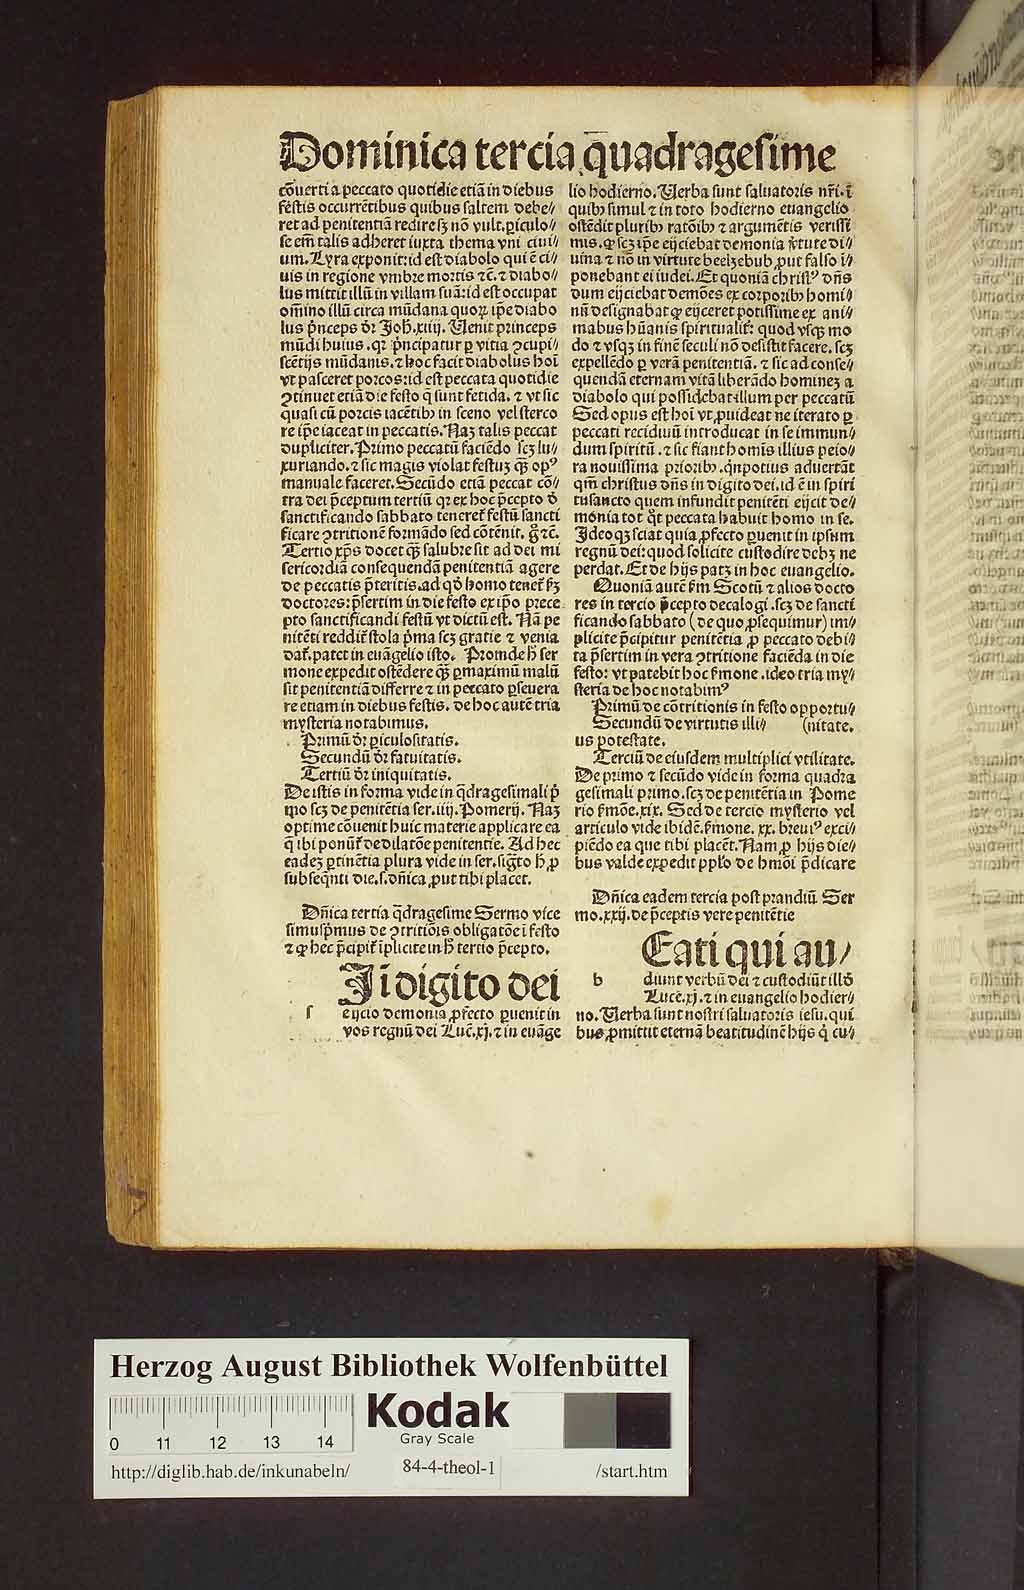 Dominica tercia q̄uadragesime
cōuerti a peccato quotidie etiā in diebus
festis occurrētibus quibus saltem debe//
ret ad penitentiā redire sꝫ nō vult. ꝑiculo//
se em̄ talis adheret iuxta thema vni ciui//
um. Lyra exponit: id est diabolo qui ē ci//
uis in regione vmbre mortis ⁊c̄. ⁊ diabo//
lus mittit illū in villam suā: id est occupat
om̄ino illū circa mūdana quoꝝ ip̄e diabo
lus p̄nceps dr̄ Joh̄. xiiij. Uenit princeps
mūdi huius. qꝛ p̄ncipatur ꝑ vitia ꝯcupi//
scētijs mūdanis. ⁊ hoc facit diabolus hoī
vt pasceret porcos: id est peccata quotidie
ꝯtinuet etiā die festo q̄ sunt fetida. ⁊ vt sic
quasi cū porcis iacētibꝰ in sceno vel sterco
re ip̄e iaceat in peccatis. Naꝫ talis peccat
dupliciter. Primo peccatū faciēdo scꝫ lu//
xuriando. ⁊ sic magis violat festuꝫ qꝫ̄ opꝰ
manuale faceret. Secūdo etiā peccat cō//
tra dei p̄ceptum tertiū qꝛ ex hoc p̄cepto d̄
sanctificando sabbato teneret̄ festū sancti
ficare ꝯtritionē formādo sed cōtēnit. gͦ ⁊c̄.
Tertio xp̄s docet qꝫ̄ salubre sit ad dei mi
sericordiā consequendā penitentiā agere
de peccatis p̄teritis. ad qd̄ homo tenet̄ ẜꝫ
doctores: p̄sertim in die festo ex ip̄o prece
pto sanctificandi festū vt dictū est. Nā pe
nitēti reddit̄ stola p̄ma scꝫ gratie ⁊ venia
dat̄. patet in euāgelio isto. Proinde h̄ ser
mone expedit ostēdere qꝫ̄ ꝑmaximū malū
sit penitentiā differre ⁊ in peccato ꝑseuera
re etiam in diebus festis. de hoc autē tria
mysteria notabimus.
Primū dr̄ ꝑiculositatis.
Secundū dr̄ fatuitatis.
Tertiū dr̄ iniquitatis.
De istis in forma vide in q̄dragesimali p̄
mo scꝫ de penitētia ser. iiij. Pomerij. Naꝫ
optime cōuenit huic materie applicare ea
q̄ ibi ponūt̄ de dilatōe penitentie. Ad hec
eadeꝫ ꝑtinētia plura vide in ser. sig̅to h̄ ꝓ
subseq̄nti die. s. dn̄ica ꝓut tibi placet.
Dn̄ica tertia q̄dragesime Sermo vice
simusp̄mus de ꝯtritiōis obligatōe ī festo
⁊ ꝙ hec p̄cipit̄ īplicite in h̄ tertio p̄cepto.
Ji digito dei
s eijcio demonia ꝓfecto ꝑuenit in
vos regnū dei Luē. xj. ⁊ in euāge
lio hodierno. Uerba sunt saluatoris nr̄i. ī
quibꝰ simul ⁊ in toto hodierno euangelio
ostēdit pluribꝰ ratōibꝰ ⁊ argumētis verissi
mis. ꝙ scꝫ ip̄e eijciebat demonia v̄tute di//
uina ⁊ nō in virtute beelzebub ꝓut falso ī//
ponebant ei iudei. Et quoniā christꝰ dn̄s
dum eijciebat demōes ex corporibꝰ homi//
nū designabat ꝙ eijceret potissime ex ani//
mabus hūanis spiritualit̄: quod vsqꝫ mo
do ⁊ vsqꝫ in finē seculi nō desistit facere. scꝫ
expellēdo ꝑ verā penitentiā. ⁊ sic ad conse//
quendā eternam vitā liberādo homineꝫ a
diabolo qui possidebat illum per peccatū
Sed opus est hoī vt ꝓuideat ne iterato ꝑ
peccati recidiuū introducat in se immun//
dum spiritū. ⁊ sic fiant homīs illius peio//
ra nouissima prioribꝰ. qn̄potius aduertāt
qm̄ christus dn̄s in digito dei. id ē in spiri
tusancto quem infundit penitēti eijcit de//
monia tot qt̄ peccata habuit homo in se.
Ideoqꝫ sciat quia ꝓfecto ꝑuenit in ipsum
regnū dei: quod solicite custodire debꝫ ne
perdat. Et de hijs patꝫ in hoc euangelio.
Quoniā autē ẜm Scotū ⁊ alios docto
res in tercio p̄cepto decalogi. scꝫ de sancti
ficando sabbato (de quo ꝓsequimur) im//
plicite p̄cipitur penitētia ꝓ peccato debi//
ta p̄sertim in vera ꝯtritione faciēda in die
festo: vt patebit hoc ẜmone. ideo tria my//
steria de hoc notabimꝰ
Primū de cōtritionis in festo opportu//
Secundū de virtutis illi// (nitate.
us potestate.
Terciū de eiusdem multiplici vtilitate.
De primo ⁊ secūdo vide in forma quadra
gesimali primo. scꝫ de penitētia in Pome
rio ẜmōe. xix. Sed de tercio mysterio vel
articulo vide ibidē. ẜmone. xx. breuiꝰ exci//
piēdo ea que tibi placēt. Nam ꝓ hijs die//
bus valde expedit pplo de hmōi p̄dicare
Dn̄ica eadem tercia post prandiū Ser
mo. xxij. de p̄ceptis vere penitētie
Eati qui au/
b diunt verbū dei ⁊ custodiūt illd̄
Luce. xj. ⁊ in euangelio hodier//
no. Uerba sunt nostri saluatoris iesu. qui
bus ꝓmittit eternā beatitudinē hijs q̄ cu//
Herzog August Bibliothek Wolfenbüttel
0 11 12 13 14
Kodak
Gray Scale
http://diglib.hab.de/inkunabeln/ 84-4-theol-1 /start.htm